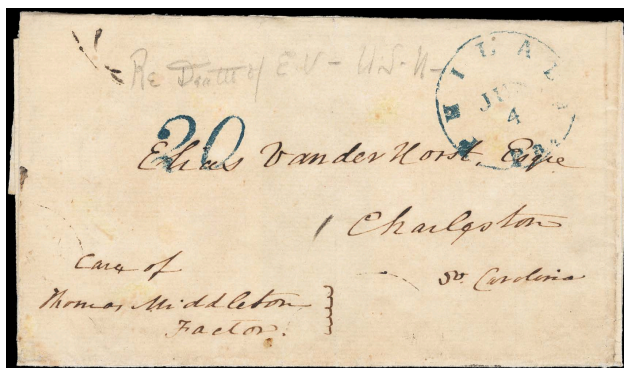 Re Death of E V - U.S.N -
PHILADA
JUN
4
Pa.
20
Elias VanderHorst, Esqre
Charleston
So. Carolina
Care of
Thomas Middleton
Factor.